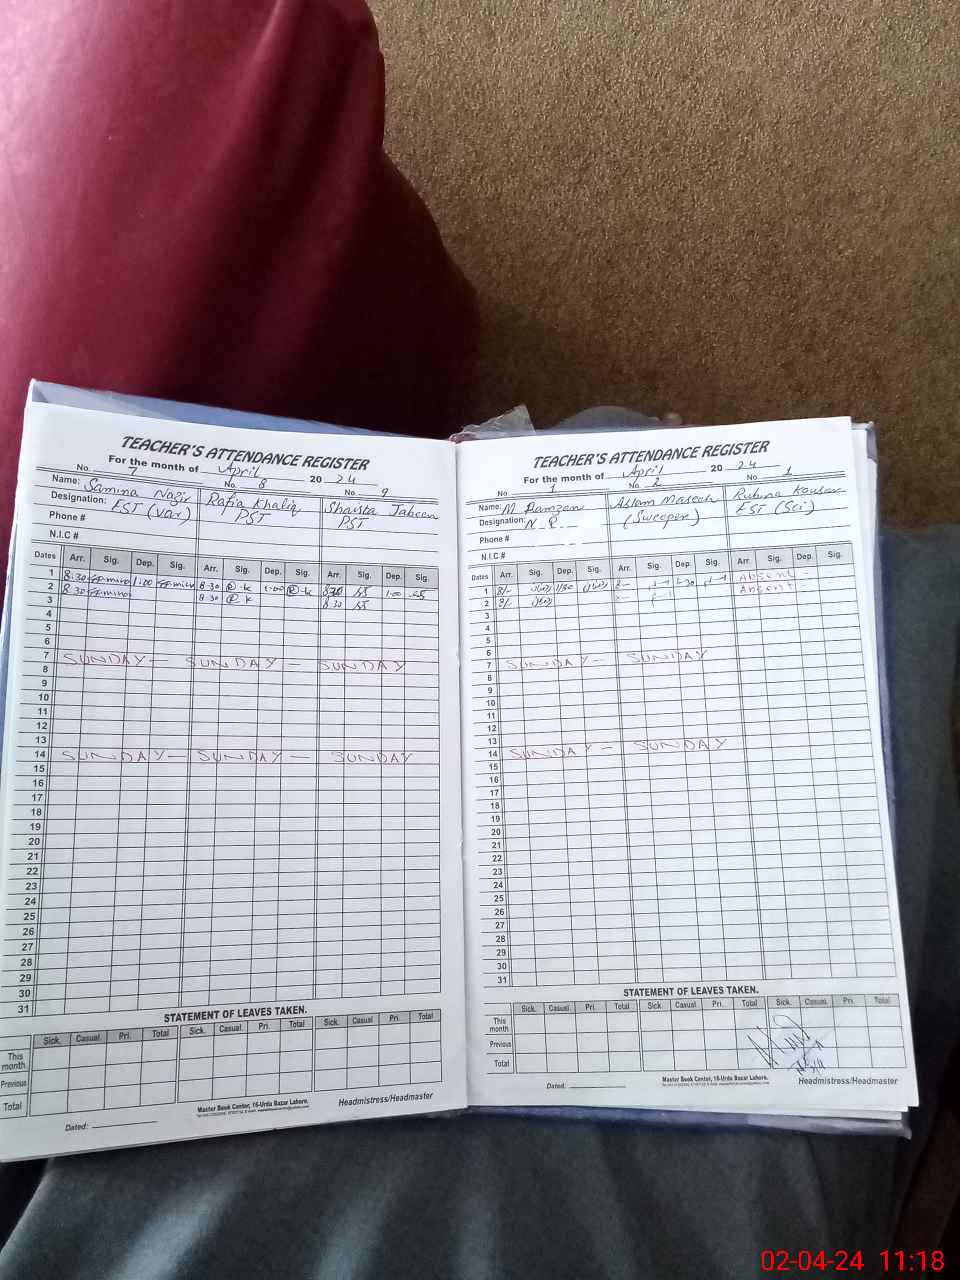 TEACHER'S ATTENDANCE REGISTER
For the month of April 2024
No. 7 No. 8 No 9
Name: Samina Nazir Rafia Khaliq Shaista Jabeen
Designation: EST (Var) PST PST
Phone #
N.I.C #
Dates Arr. Sig. Dep. Sig. Arr. Sig. Dep. Sig. Arr. Sig. Dep. Sig.
1 8.30 1.00 8.30 R-k 1.00 R-k 8.30 1.00
2 8.30 8.30 R-k 8.30
3
4
5
6
7 SUNDAY — SUNDAY — SUNDAY
8
9
10
11
12
13
14 SUNDAY — SUNDAY — SUNDAY
15
16
17
18
19
20
21
22
23
24
25
26
27
28
29
30
31
STATEMENT OF LEAVES TAKEN.
Sick. Casual. Pri. Total Sick. Casual. Pri. Total Sick. Casual. Pri. Total
This month
Previous
Total
Master Book Center, 16-Urdu Bazar Lahore.
Dated: Headmistress/Headmaster
TEACHER'S ATTENDANCE REGISTER
For the month of April 2024
No 1 No. 2 No. 1
Name: M Ramzan Aslam Maseeh Rubina Kousar
Designation: N.Q. (Sweeper) EST (Sci)
Phone #
N.I.C #
Dates Arr. Sig. Dep. Sig. Arr. Sig. Dep. Sig. Arr. Sig. Dep. Sig.
1 8/- 1/30 8- 1-30 Absent
2 8/- Absent
3
4
5
6
7 SUNDAY — SUNDAY
8
9
10
11
12
13
14 SUNDAY — SUNDAY
15
16
17
18
19
20
21
22
23
24
25
26
27
28
29
30
31
STATEMENT OF LEAVES TAKEN.
Sick. Casual. Pri. Total Sick. Casual. Pri. Total Sick. Casual. Pri. Total
This month
Previous
Total
Master Book Center, 16-Urdu Bazar Lahore.
Dated: Headmistress/Headmaster
02-04-24 11:18